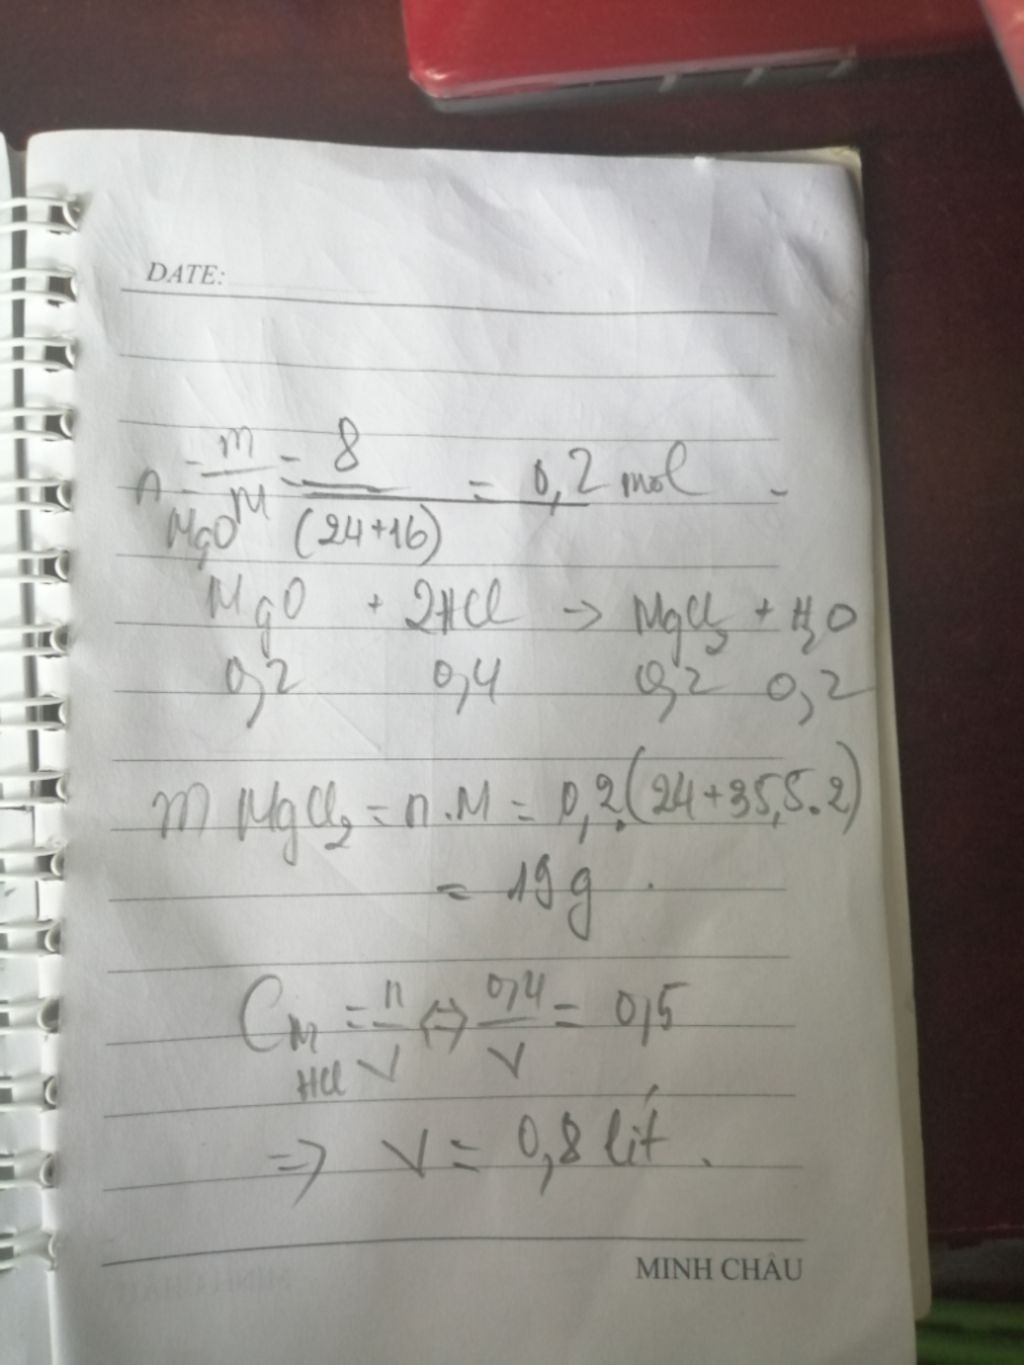 DATE:
n MgO = m/M = 8/(24+16) = 0,2 mol
MgO + 2HCl → MgCl₂ + H₂O
0,2 0,4 0,2 0,2
m MgCl₂ = n.M = 0,2.(24+35,5.2)
= 19g.
C_M HCl = n/V ⇔ 0,4/V = 0,5
=> V = 0,8 lít.
MINH CHÂU